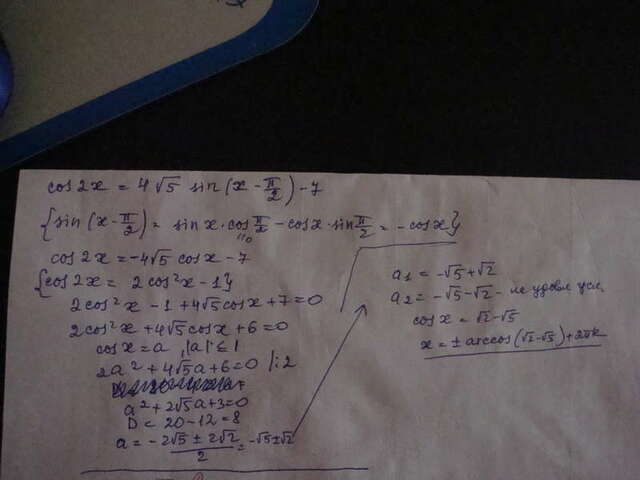 cos2x = 4√5 sin(x - π/2) - 7
{sin(x - π/2) = sinx · cos π/2 - cosx · sin π/2 = - cosx}
"0
cos2x = -4√5 cosx - 7
{cos2x = 2cos²x - 1}
2cos²x - 1 + 4√5cosx + 7 = 0
2cos²x + 4√5cosx + 6 = 0
cosx = a, |a| ≤ 1
2a² + 4√5a + 6 = 0 |:2
a² + 2√5a + 3 = 0
D = 20 - 12 = 8
a = (-2√5 ± 2√2)/2 = -√5 ± √2
a1 = -√5 + √2
a2 = -√5 - √2 - не удовл усл,
cosx = √2 - √5
x = ± arccos(√2 - √5) + 2πk